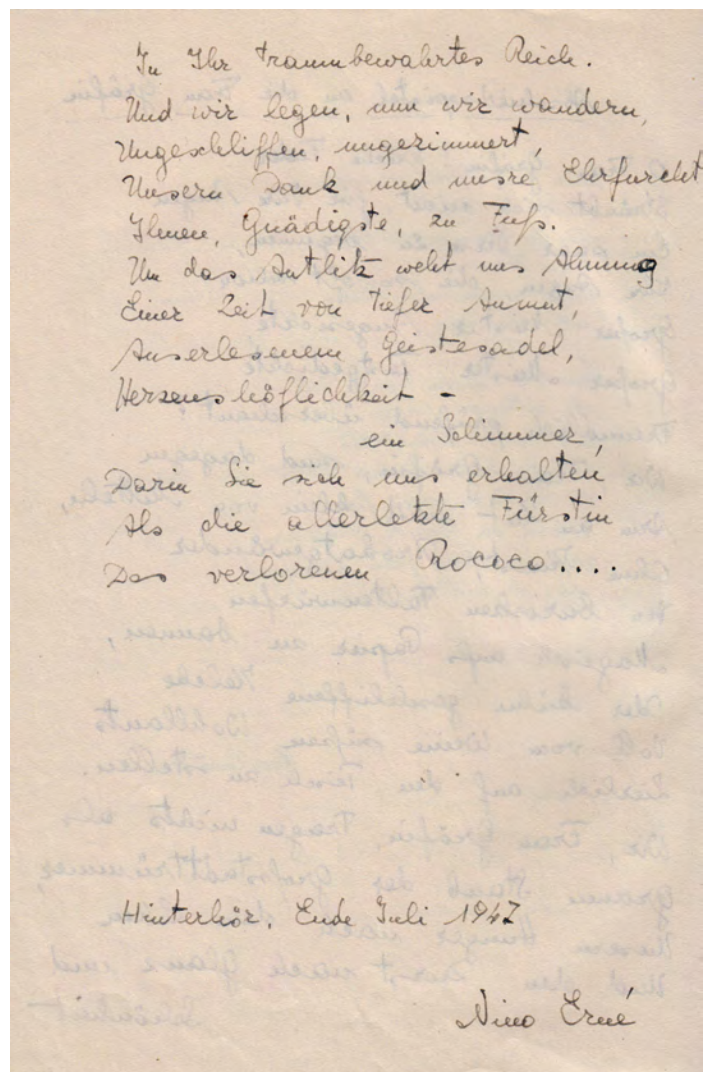 In Ihr traumbewahrtes Reich.
Und wir legen, nun wir wandern,
Ungeschliffen, ungezimmert,
Unsern Dank und unsre Ehrfurcht
Ihnen, Gnädigste, zu Fuß.
Um das Antlitz weht uns Ahnung
Einer Zeit von tiefer Anmut,
Auserlesenem Geistesadel,
Herzenshöflichkeit -
ein Schimmer,
Darin Sie sich uns erhalten
Als die allerletzte Fürstin
Des verlorenen Rococo....
Hinterhör, Ende Juli 1947
Nino Erné